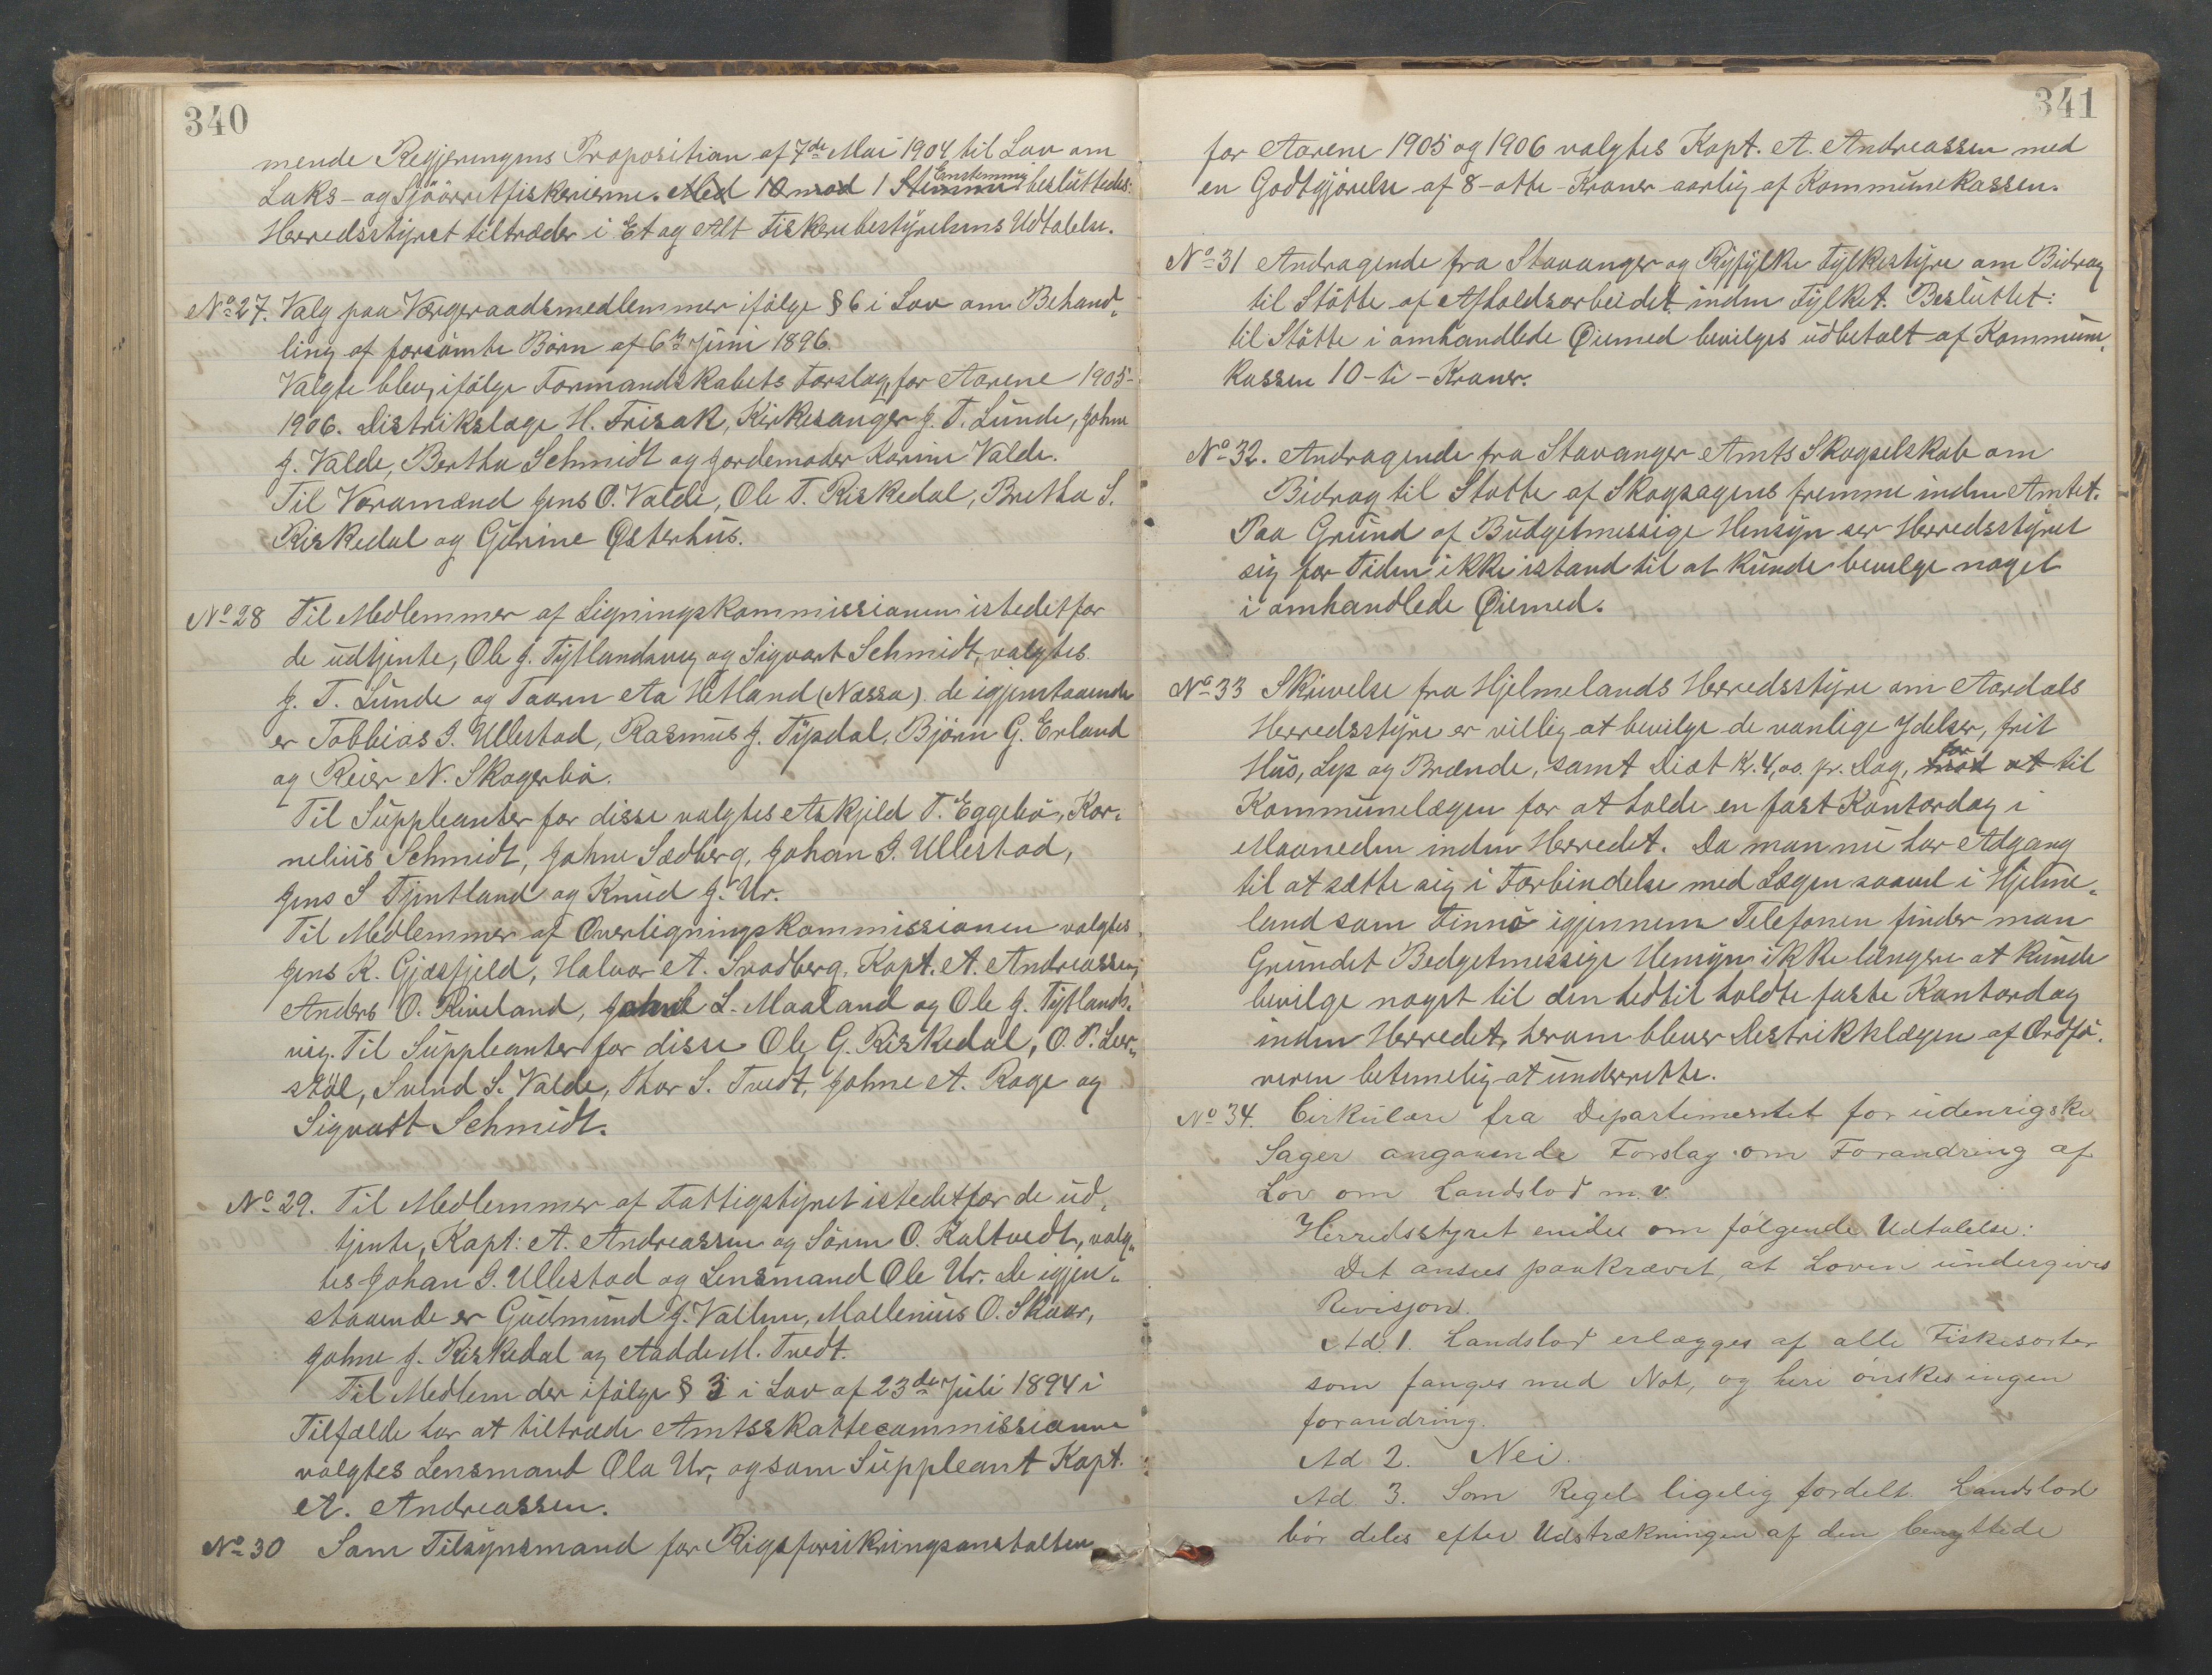 340
mende Regjeringens Proposition af 7de Mai 1904 til Lov om
Laks- og Sjöörretfiskerierne. Med 10 mod 1 Stemme Enstemmig besluttedes:
Herredsstyret tiltræder i Et og Alt Fiskeribestyrelsens Udtalelse.
No 27. Valg paa Værgeraadsmedlemmer ifölge § 6 i Lov om Behand-
ling af forsömte Börn af 6te Juni 1896.
Valgte blev, ifölge Formandskabets Forslag, for Aarene 1905-
1906. Distrikslæge H. Frisak, Kirkesanger J. T. Lunde, Johne
J. Valde, Bertha Schmidt og Jordemoder Karine Valde.
Til Varamænd Jens O. Valde, Ole T. Riskedal, Bretha S.
Riskedal og Gurine Østerhus.
No 28 Til Medlemmer af Ligningskommissionen istedetfor
de udtjente, Ole J. Tytlandsvig og Sigvart Schmidt, valgtes
J. T. Lunde og Taarn Aa Hetland (Nessa). de igjenstaaende
er Tobbias I. Ullestad, Rasmus J. Tysdal, Björn G. Erland
og Reier N. Skogerbö.
Til Suppleanter for disse valgtes Askjeld T. Eggebö, Kor-
nelius Schmidt, Johne Sædberg, Johan I. Ullestad,
Jens S Tjentland og Knud J. Ur.
Til Medlemmer af Overligningskommissionen valgtes
Jens K. Gjæsfjeld, Halvor A. Svadberg, Kapt. A. Andreassen,
Anders O. Riveland, L. Maaland og Ole J. Tytlands-
vig. Til Suppleanter for disse Ole G. Riskedal, O. P. Leer-
stöl, Svend S. Valde, Thor S. Tvedt, Johne A. Roge og
Sigvart Schmidt.
No 29. Til Medlemmer af Fattigstyret istedetfor de ud-
tjente, Kapt: A. Andreassen og Sören O. Kaltvedt, valg-
tes Johan I. Ullestad og Lensmand Ole Ur. De igjen-
staaende er Gudmund J. Valheim, Mallenius O. Skaar,
Johne J. Riskedal og Aadde M. Tvedt.
Til Medlem der ifölge § 3 i Lov af 23de Juli 1894 i
Tilfælde har at tiltræde Amtsskattecommissionne
valgtes Lensmand Ola Ur, og som Suppleant Kapt.
A. Andreassen.
No 30 Som Tilsynsmand for Rigsforsikringsanstalten
341
for Aarene 1905 og 1906 valgtes Kapt. A. Andreassen med
en Godtgjörelse af 8 - otte - Kroner aarlig af Kommunekassen.
No 31 Andragende fra Stavanger og Ryfylke Fylkestyre om Bidrag
til Stötte af Afholdsarbeidet inden Fylket. Besluttet:
til Stötte i omhandlede Øiemed bevilges udbetalt af Kommune-
kassen 10 - ti - Kroner.
No 32. Andragende fra Stavanger Amts Skogselskab om
Bidrag til Stötte af Skogsagens fremme inden Amtet.
Paa Grund af Budgetmessige Hensyn ser Herredsstyret
sig for Tiden ikke istand til at kunde bevilge noget
i omhandlede Øiemed.
No 33 Skrivelse fra Hjelmelands Herredsstyre om Aardals
Herredsstyre er villig at bevilge de vanlige Ydelser, frit
Hus, Lys og Brænde, samt Diæt Kr. 4,00. pr. Dag, mod for at til
Kommunelægen for at holde en fast Kontordag i
Maaneden inden Herredet. Da man nu har Adgang
til at sætte sig i Forbindelse med Lægen saavel i Hjelme-
land som Finnö igjennem Telefonen finder man
Grundet Bedgetmessige Hensyn ikke længere at kunde
bevilge noget til den hedtil holdte faste Kontordag
inden Herredet, herom bliver Destrikklægen af Ordfö-
reren betimelig at underrette.
No 34. Cirkulære fra Departimentet for udenrigske
Sager angaaende Forslag om Forandring af
Lov om Landslod m.v.
Herredsstyret enides om følgende Udtalelse:
Det ansees paakrævet, at Loven undergives
Revisjon.
Ad. 1. Landslod erlægges af alle Fiskesorter
som fanges med Not, og heri ønskes ingen
forandring.
Ad 2. Nei.
Ad. 3. Som Regel ligelig fordelt. Landslod
bör deles efter Udstrækningen af den benyttede